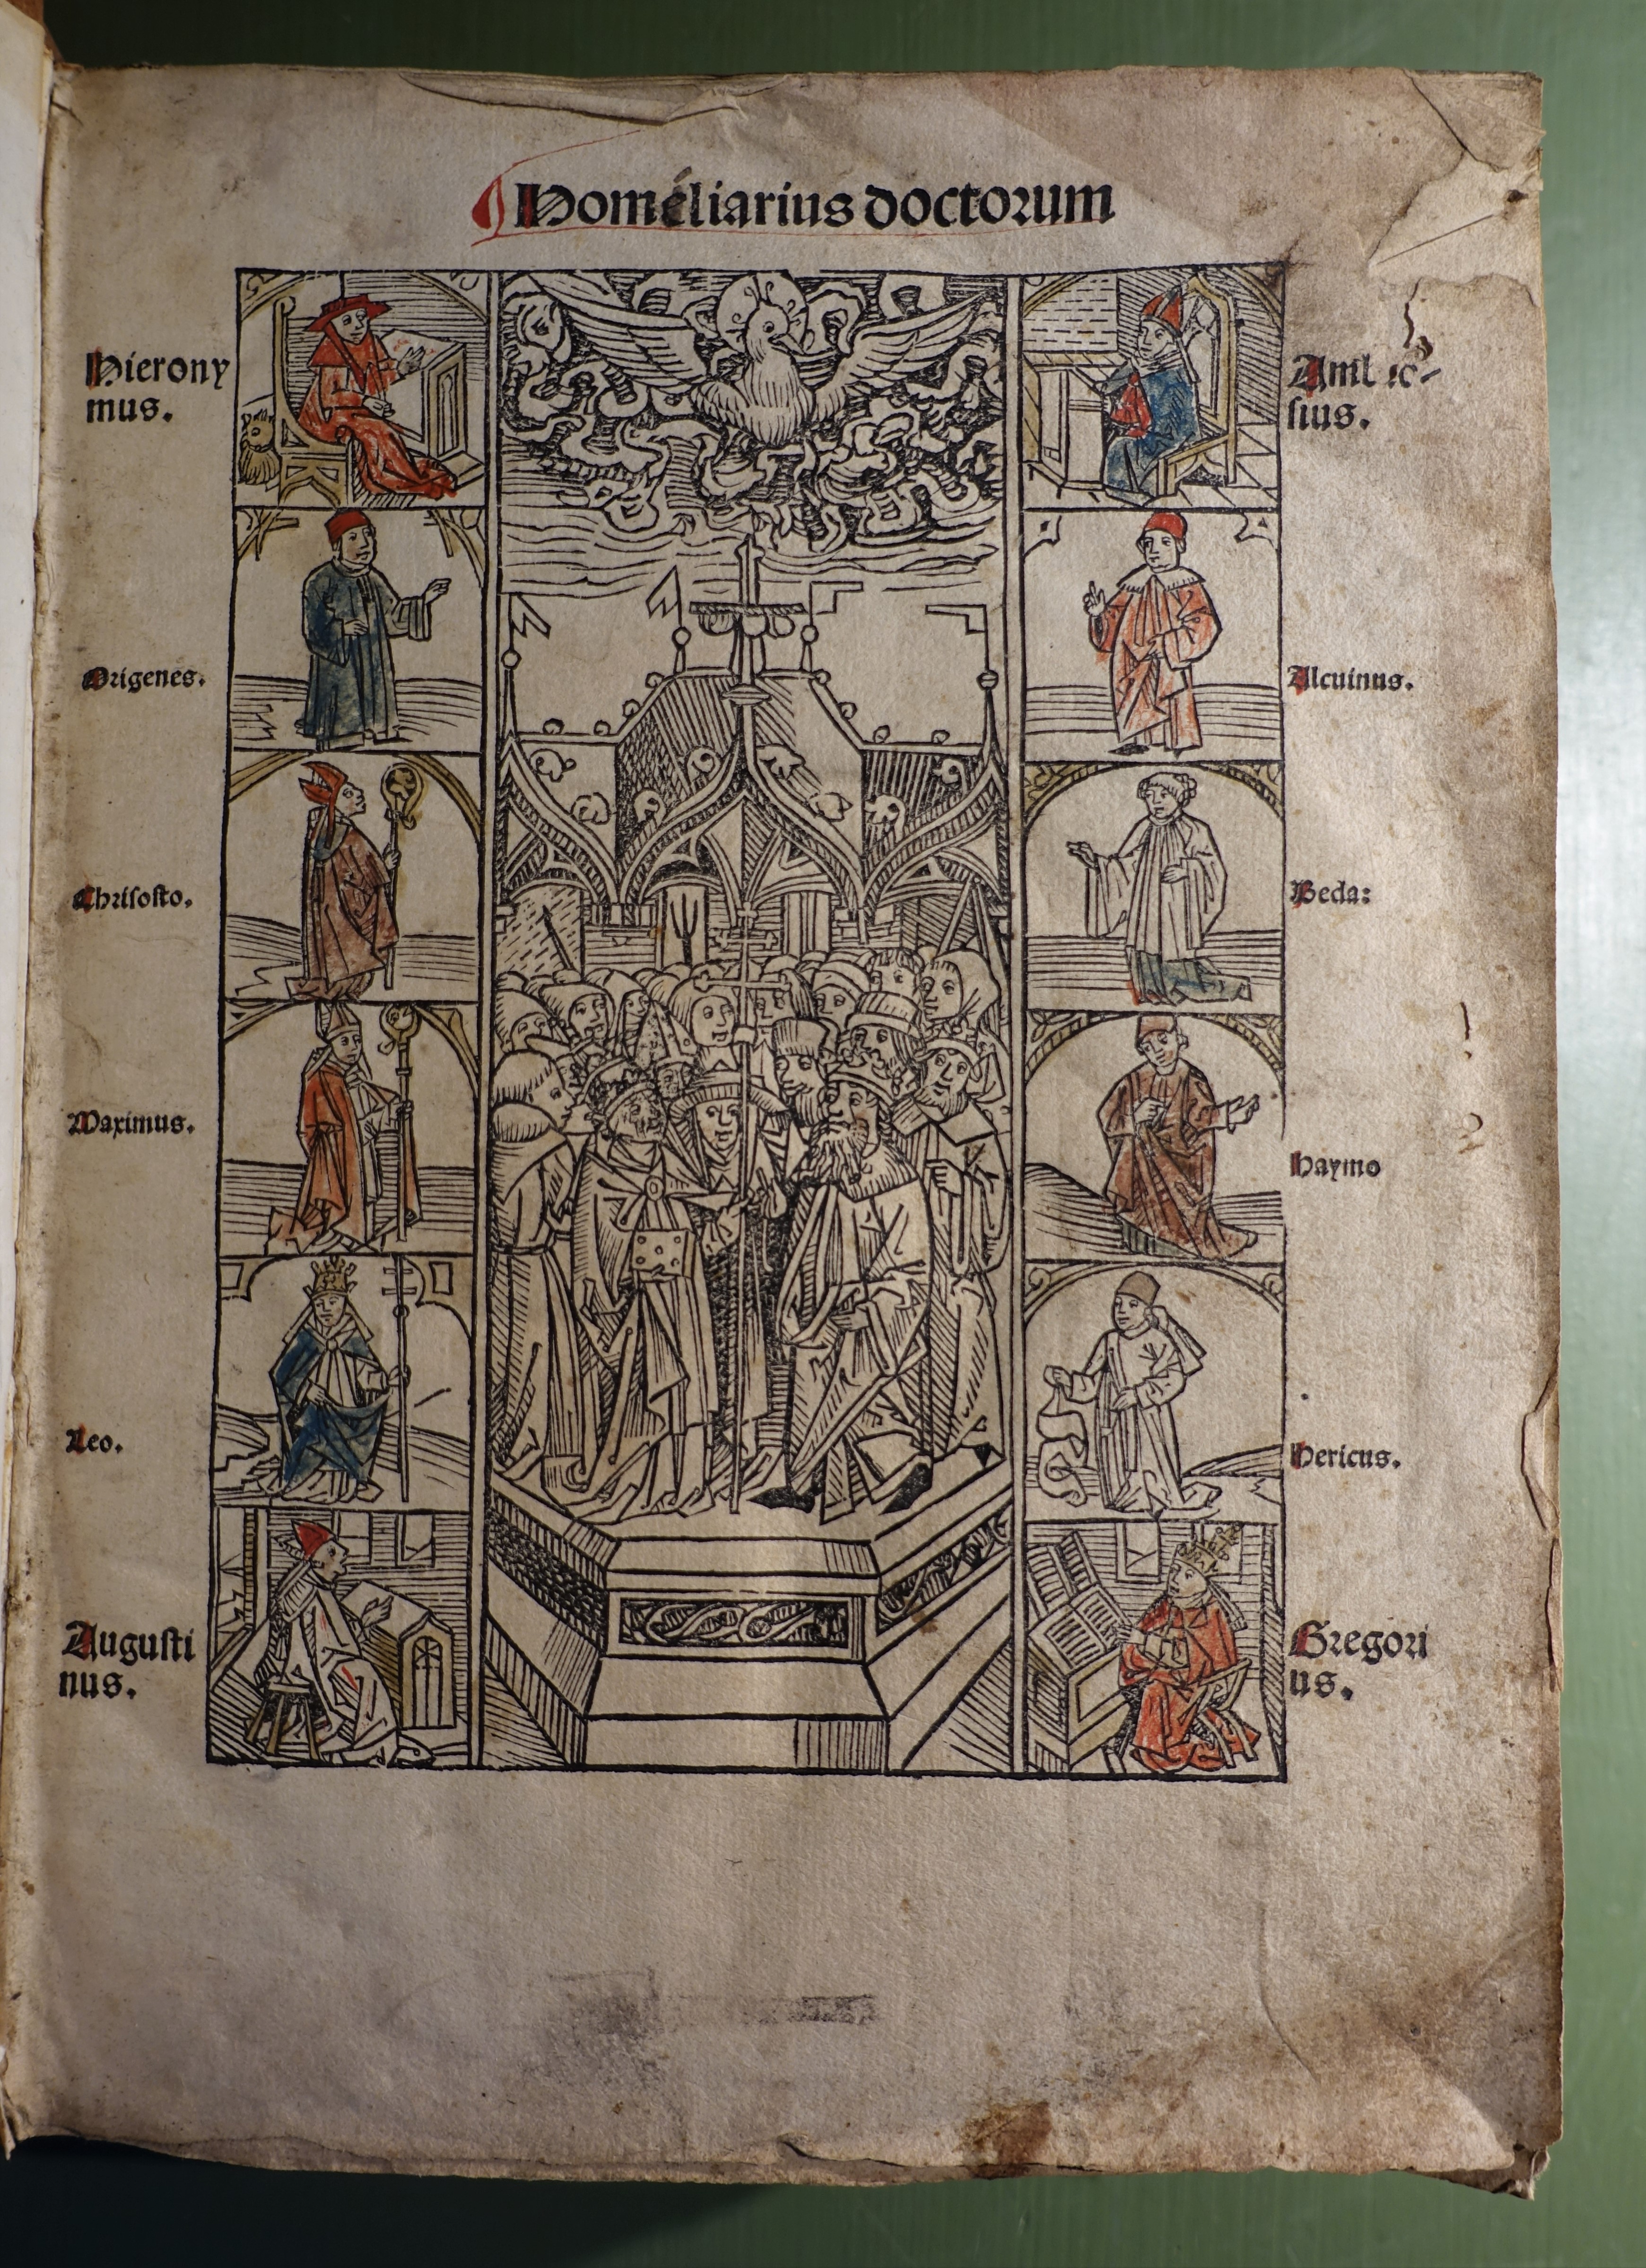 Homéliarius doctorum
Hierony
mus.
Origenes.
Chrisosto.
Maximus.
Leo.
Augusti
nus.
sius.
Alcuinus.
Beda:
Haymo
Hericus.
Gregori
us.